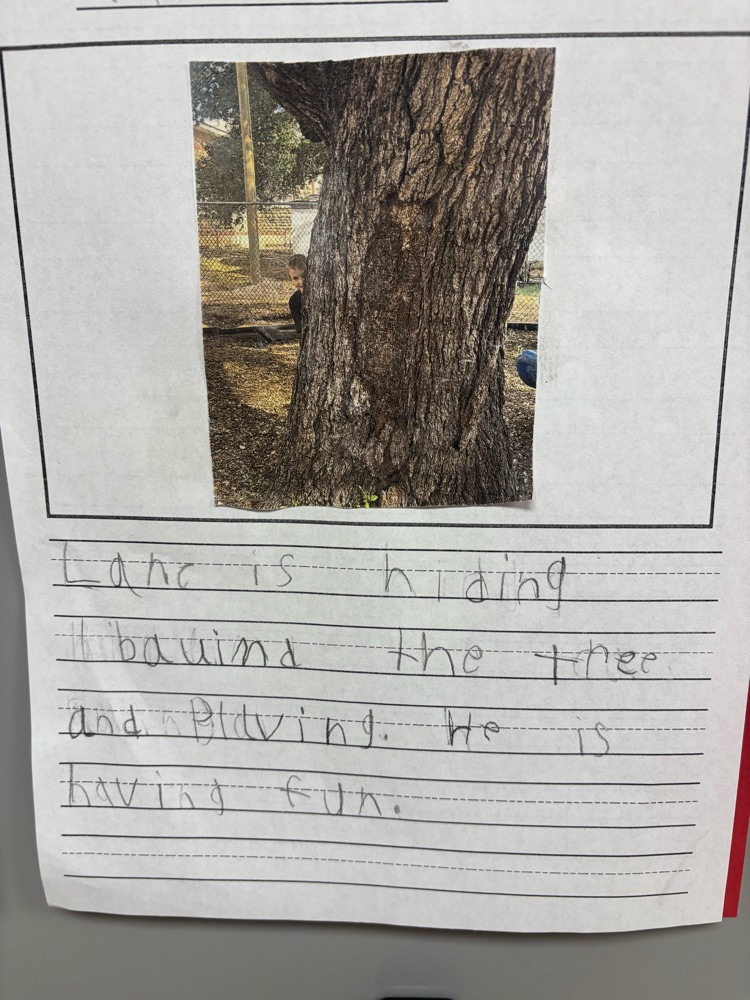 Lane is hiding
bauind the tree
and Playing. He is
having fun.